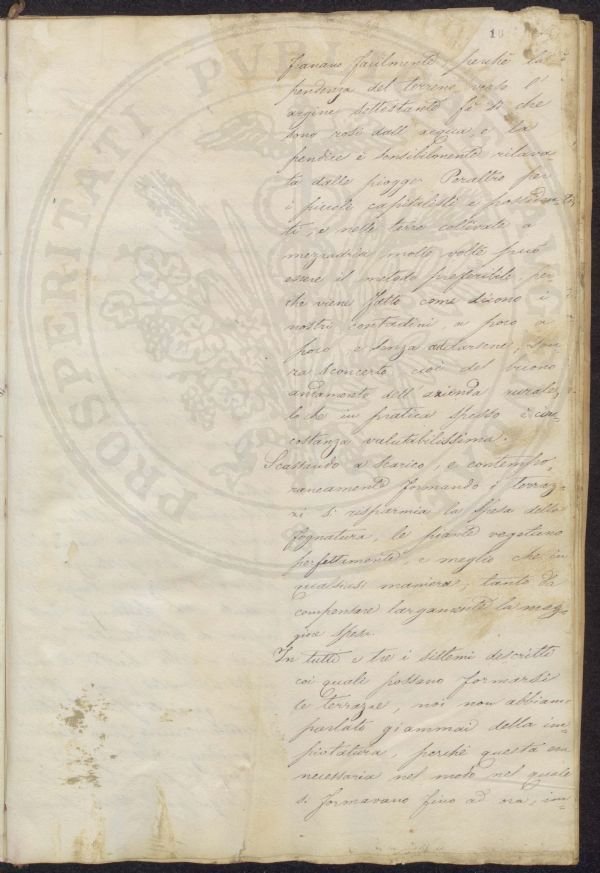 10
franano facilmente, perchè la
pendenza del terreno verso l'
argine sottostante fà sì che
sono rosi dall'acqua, e la
pendice è sensibilmente rilava=
ta dalle piogge. Peraltro per
i piccoli capitalisti e possiden=
ti, e nelle terre coltivate a
mezzadria molte volte può
essere il metodo preferibile, per
che viene fatto come dicono i
nostri contadini, a poco a
poco e senza addarsene, sen
za sconcerto cioè del buono
andamento dell'azienda rurale,
lo che in pratica spesso è cir=
costanza valutabilissima.
Scassando a scarico, e contempo=
raneamente formando i terraz=
zi si risparmia la spesa della
fognatura, le piante vegetano
perfettamente, e meglio che in
qualsiasi maniera, tanto da
compensare largamente la mag=
gior spesa.
In tutti e tre i sistemi descritti
coi quale possano formarsi
le terrazze, noi non abbiamo
parlato giammai della im=
piotatura, perchè questa era
necessaria nel modo nel quale
si formavano fino ad ora, im=
PROSPERITATI PUBLICAE AUGENDAE